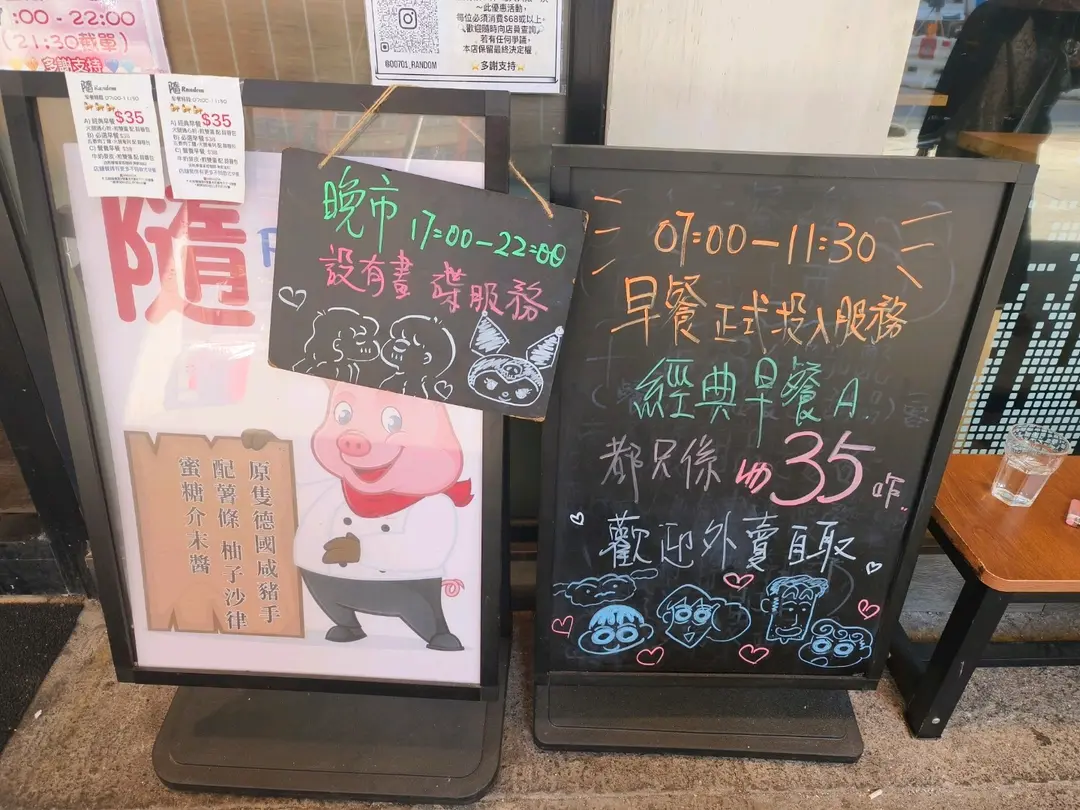 7:00 - 22:00
(21:30截單)
多謝支持
～此優惠活動，
每位必須消費$68或以上。
歡迎隨時向店員查詢
若有任何爭議，
本店保留最終決定權
多謝支持
@00701_RANDOM
隨 Random
$35
A) 經典早餐
B)
C) 營養早餐
隨 Random
$35
A) 經典早餐
B)
C) 營養早餐
隨
晚市 17:00-22:00
設有晝碟服務
原隻德國咸豬手
配薯條 柚子沙律
蜜糖介末醬
07:00-11:30
早餐正式投入服務
經典早餐A.
都只係 35 咋..
歡迎外賣自取